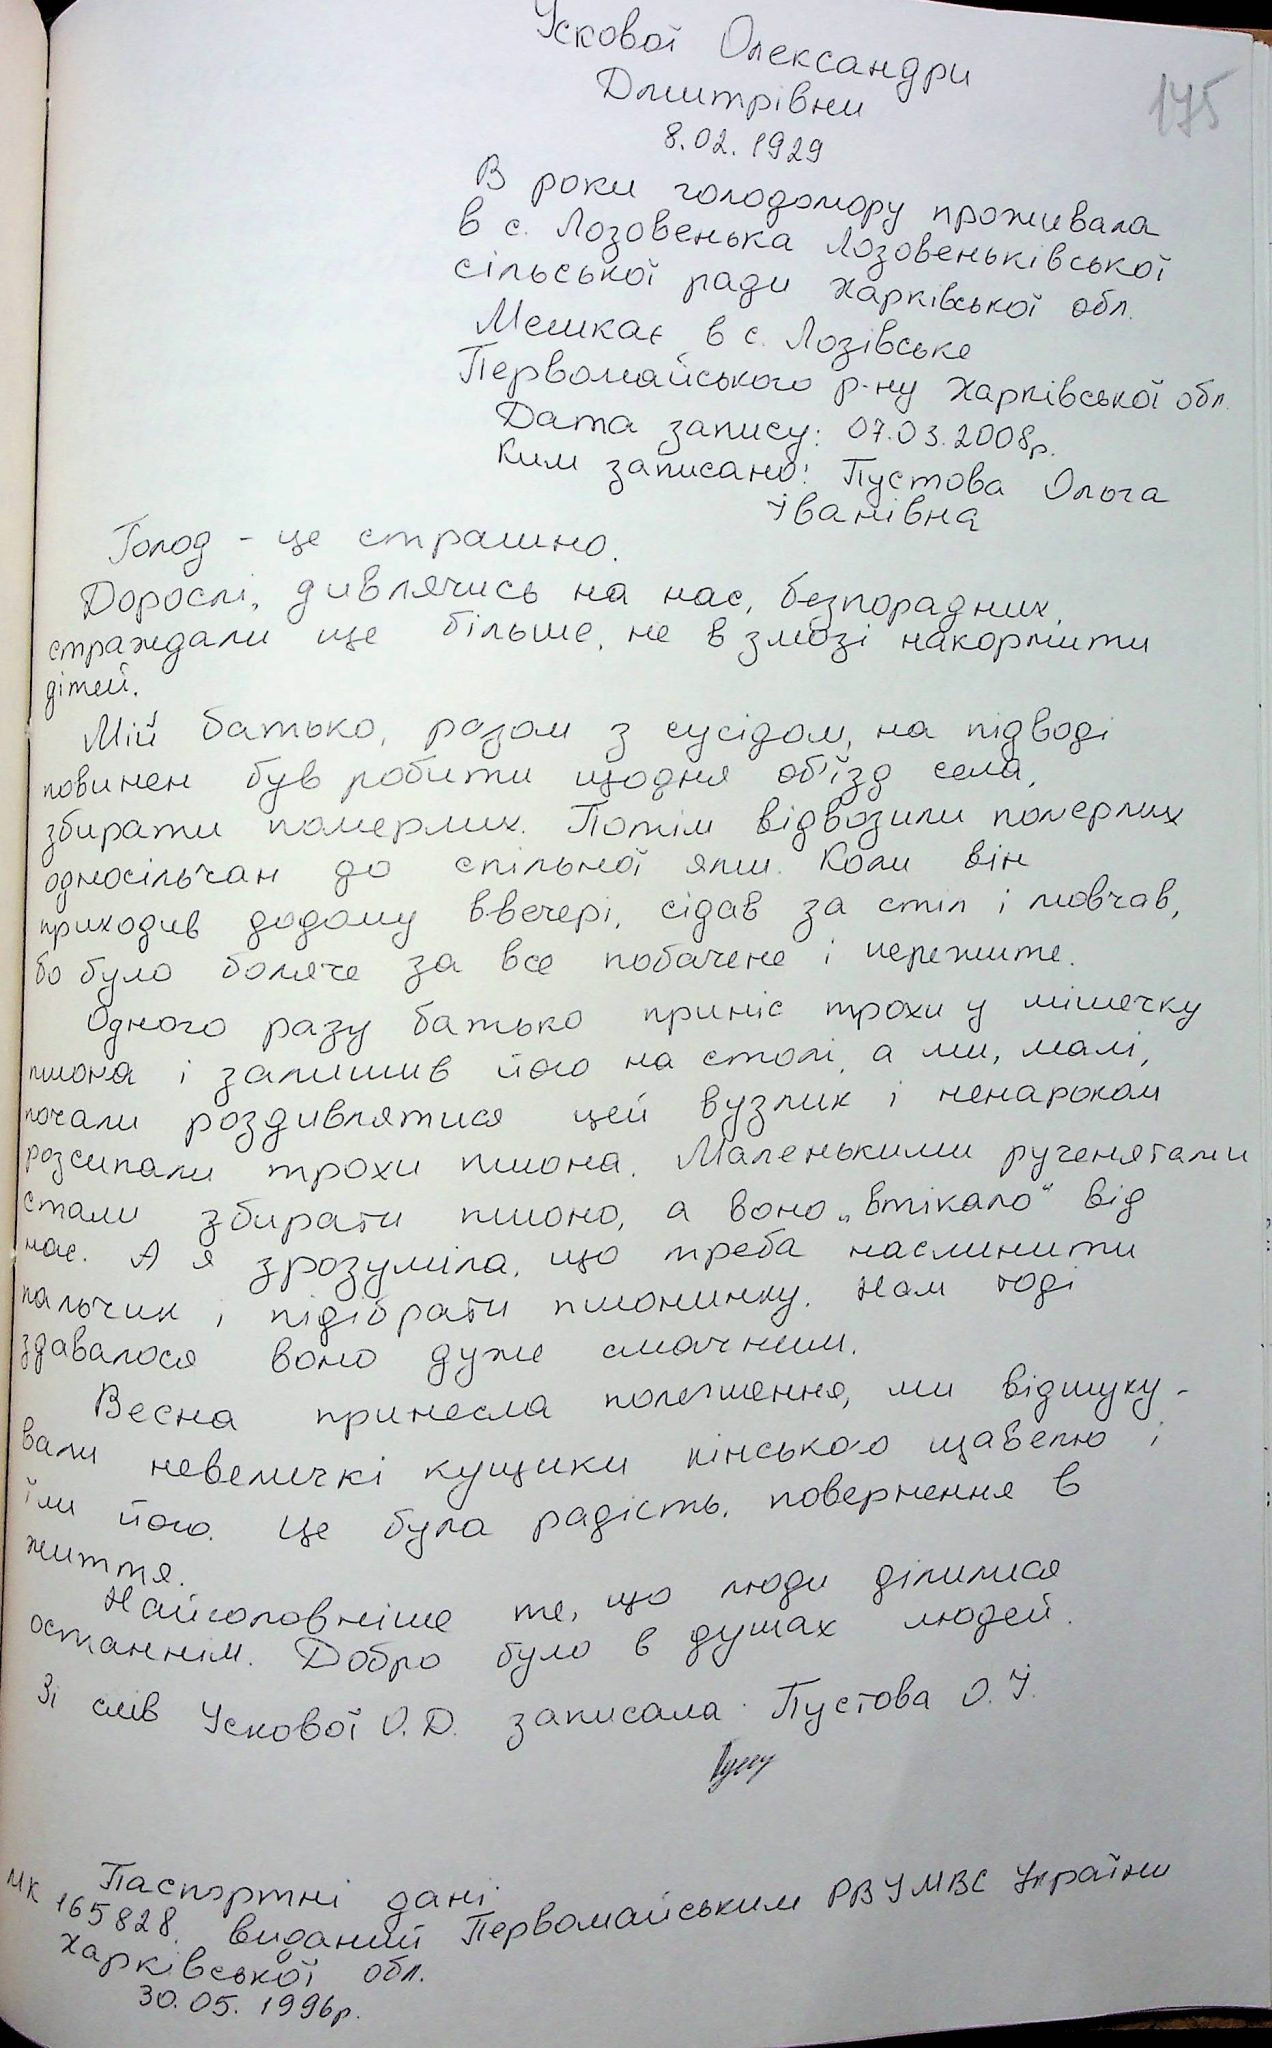 175
Ускової Олександри
Дмитрівни
8.02.1929
В роки голодомору проживала
в с. Лозовенька Лозовеньківської
сільської ради Харківської обл.
Мешкає в с. Лозівське
Первомайського р-ну Харківської обл.
Дата запису: 07.03.2008р.
Ким записано: Пустова Ольга
Іванівна
Голод - це страшно.
Дорослі, дивлячись на нас, безпорадних,
страждали ще більше, не в змозі накормити
дітей.
Мій батько, разом з сусідом, на підводі
повинен був робити щодня об'їзд села,
збирати померлих. Потім відвозили померлих
односільчан до спільної ями. Коли він
приходив додому ввечері, сідав за стіл і мовчав,
бо було боляче за все побачене і пережите.
Одного разу батько приніс трохи у мішечку
пшона і залишив його на столі, а ми, малі,
почали роздивлятися цей вузлик і ненароком
розсипали трохи пшона. Маленькими рученятами
стали збирати пшоно, а воно „втікало" від
нас. А я зрозуміла, що треба наслинити
пальчик і підібрати пшонинку. Нам тоді
здавалося воно дуже смачним.
Весна принесла полегшення, ми відшуку-
вали невеличкі кущики кінського щавелю і
їли його. Це була радість, повернення в
життя.
Найголовніше те, що люди ділилися
останнім. Добро було в душах людей.
Зі слів Ускової О.Д. записала Пустова О.І.
Паспортні дані
МК 165828. виданий Первомайським РВУМВС України
Харківської обл.
30.05.1996р.